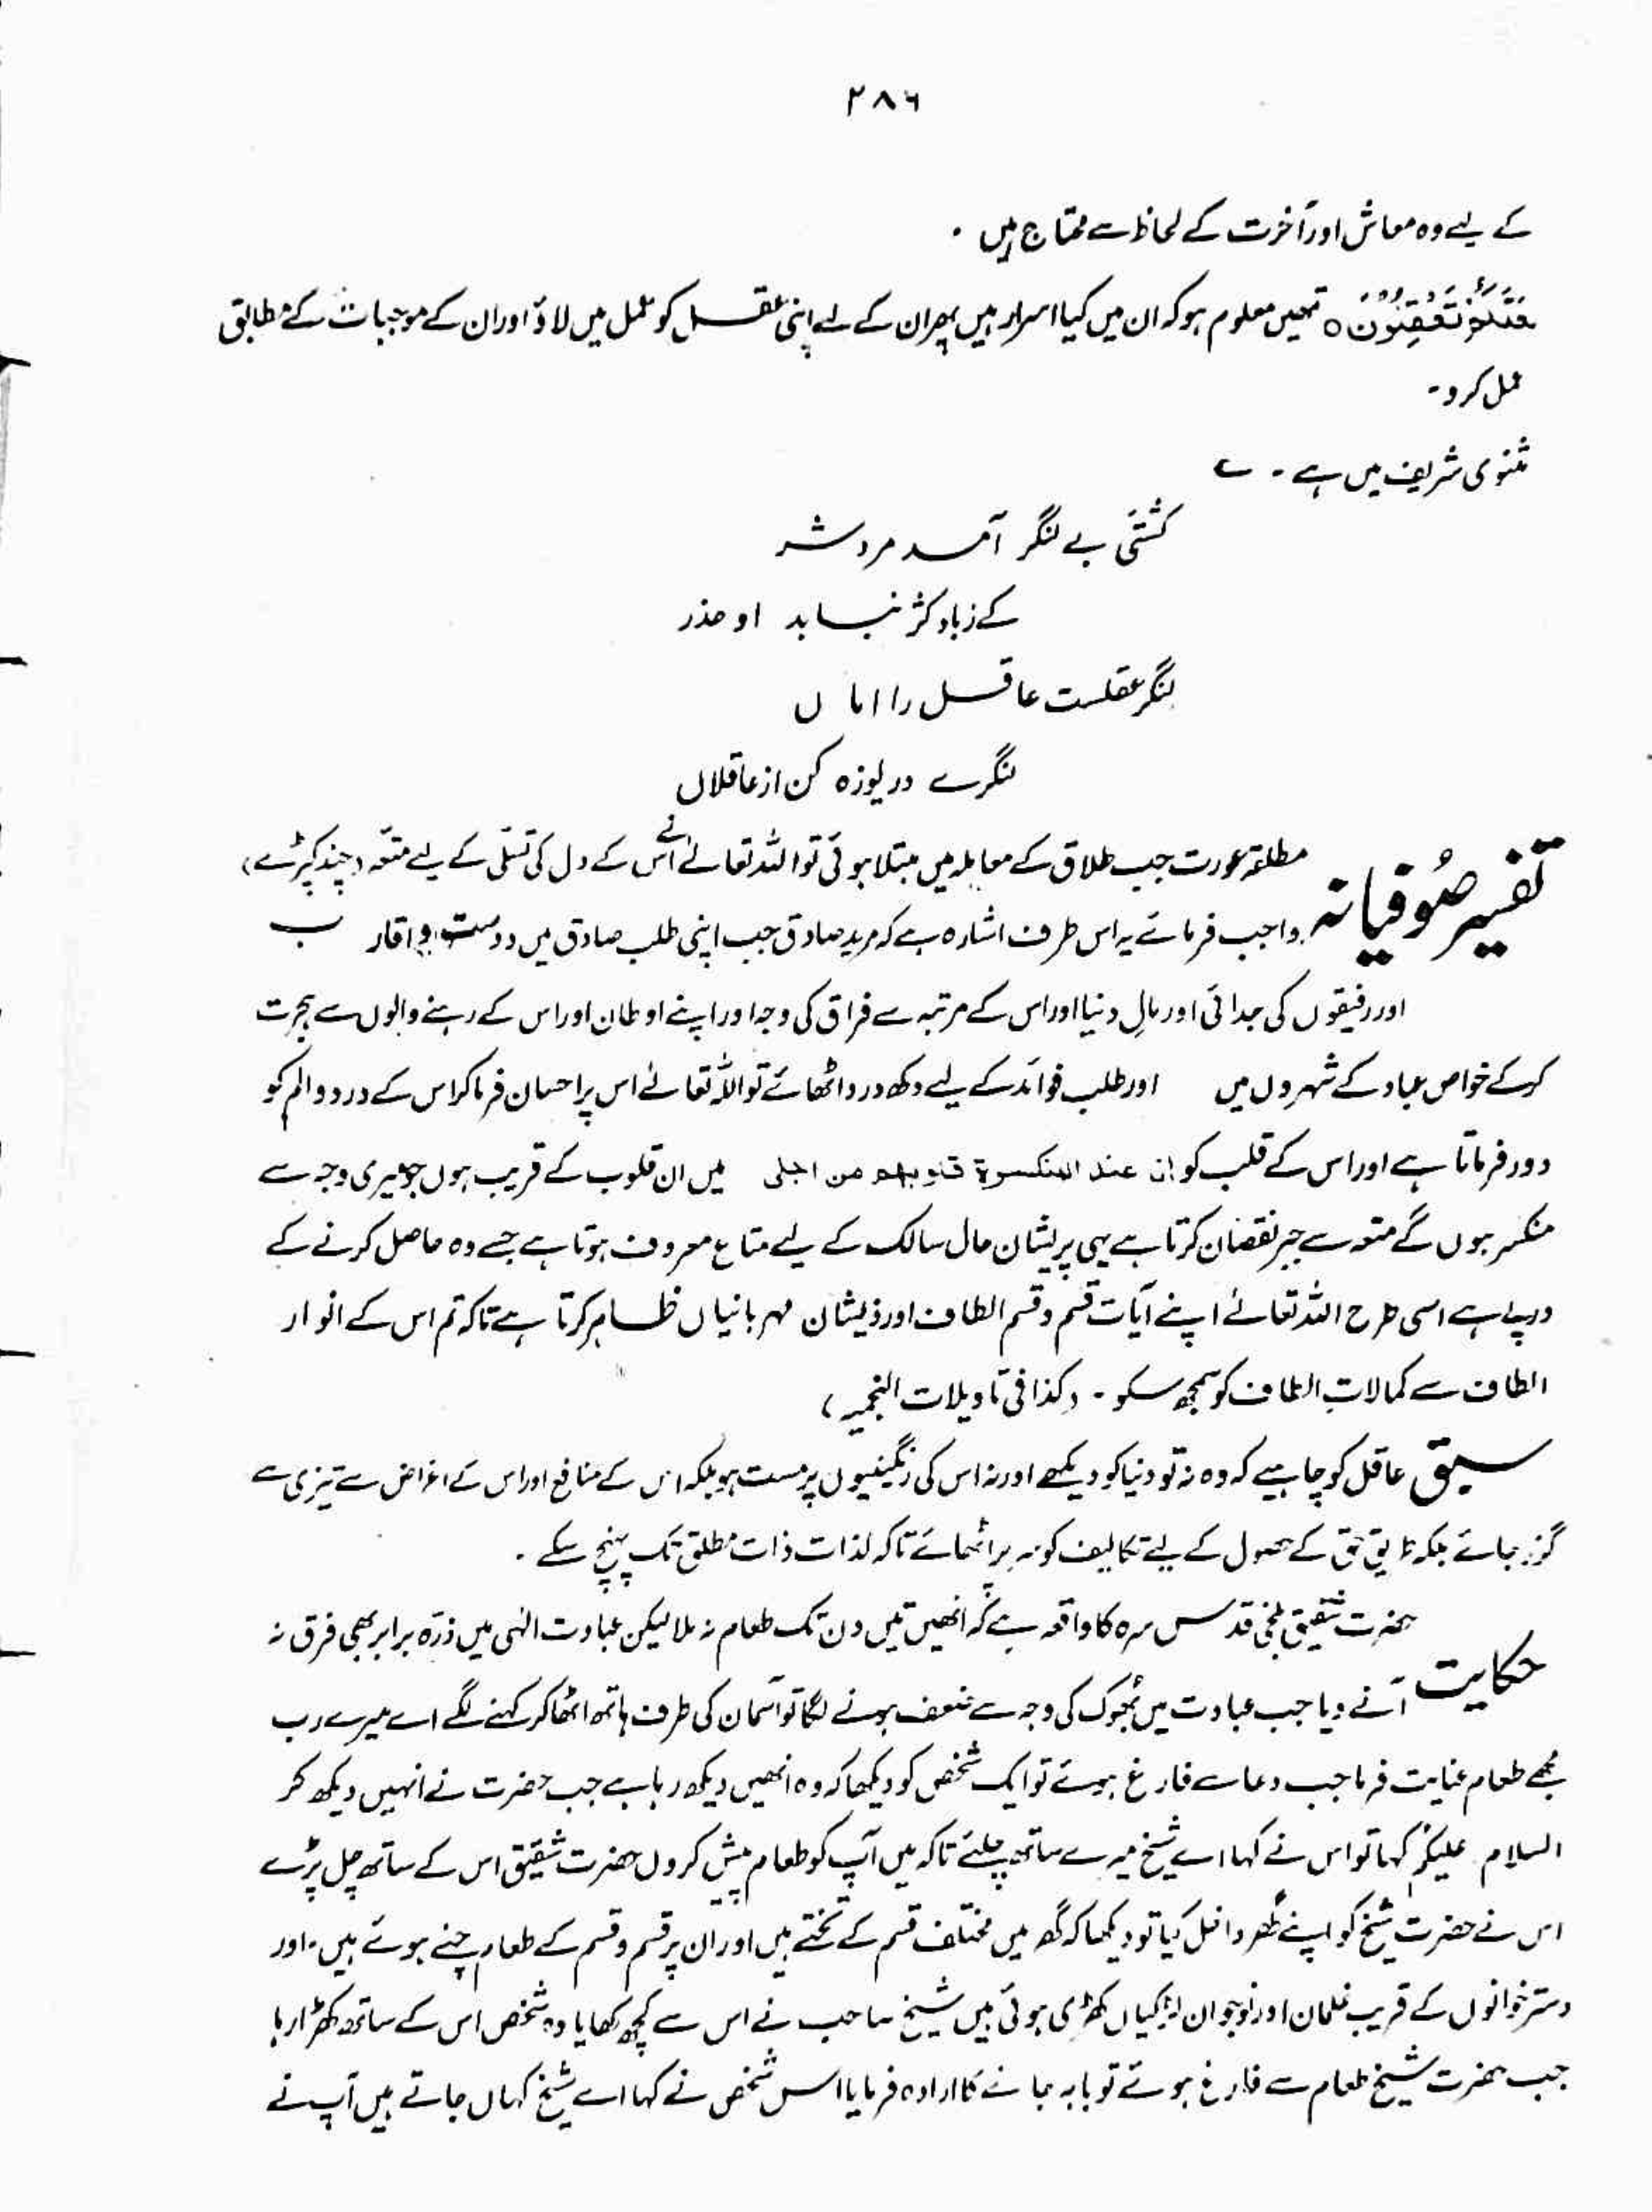 ۲۸۶
کے لیے وہ معاش اور آخرت کے لحاظ سے محتاج ہیں ۔
تَعْقِلُوْنَ ہ تمھیں معلوم ہو کہ ان میں کیا اسرار ہیں پھر ان کے لیے اپنی عقل کو عمل میں لاؤ اور ان کے موجبات کے مطابق
عمل کرو۔
مثنوی شریف میں ہے ۔ ؎
کشتیٔ بے لنگر آمد مرد شر
کے زباد کژ نیابد او حذر
لنگر عقلست عاقل را اماں
لنگرے دریوزہ کن از عاقلاں
تفسیر صُوفیانہ مطلقہ عورت جب طلاق کے معاملہ میں مبتلا ہوئی تو اللہ تعالےٰ نے اس کے دل کی تسلّی کے لیے متعہ (چند کپڑے)
واجب فرمائے یہ اس طرف اشارہ ہے کہ مرید صادق جب اپنی طلب صادق میں دوست و اقارب
اور رفیقوں کی جدائی اور مالِ دنیا اور اس کے مرتبہ سے فراق کی وجہ اور اپنے اوطان اور اس کے رہنے والوں سے ہجرت
کرکے خواص عباد کے شہروں میں اور طلب فوائد کے لیے دکھ درد اٹھائے تو اللہ تعالےٰ اس پر احسان فرماکر اس کے درد والم کو
دور فرماتا ہے اور اس کے قلب کو ان عند المنکسرة قلوبهم من اجلی میں ان قلوب کے قریب ہوں جو میری وجہ سے
منکسر ہوں گے متعہ سے جبر نقصان کرتا ہے یہی پریشان حال سالک کے لیے متاع معروف ہوتا ہے جسے وہ حاصل کرنے کے
درپے ہے اسی طرح اللہ تعالےٰ اپنے آیات قسم و قسم الطاف اور ذیشان مہربانیاں ظاہر کرتا ہے تاکہ تم اس کے انوار
الطاف سے کمالاتِ الطاف کو سمجھ سکو ۔ (کذا فی تاویلات النجمیہ)
سبق عاقل کو چاہیے کہ وہ نہ تو دنیا کو دیکھے اور نہ اس کی رنگینیوں پر مست ہو بلکہ اس کے منافع اور اس کے اغراض سے تیزی سے
گزر جائے بلکہ حق کے حصول کے لیے تکالیف کو سر پر اٹھائے تاکہ لذات ذات مطلق تک پہنچ سکے ۔
حکایت حضرت شقیق بلخی قدس سرہ کا واقعہ ہے کہ انھیں تین دن تک طعام نہ ملا لیکن عبادت الٰہی میں ذرّہ برابر بھی فرق نہ
آنے دیا جب عبادت میں بُھوک کی وجہ سے ضعف ہونے لگا تو آسمان کی طرف ہاتھ اٹھا کر کہنے لگے اے میرے رب
مجھے طعام عنایت فرما جب دعا سے فارغ ہوئے تو ایک شخص کو دیکھا کہ وہ انھیں دیکھ رہا ہے جب حضرت نے انہیں دیکھ کر
السلام علیکم کہا تو اس نے کہا اے شیخ میرے ساتھ چلئے تاکہ میں آپ کو طعام پیش کروں حضرت شقیق اس کے ساتھ چل پڑے
اس نے حضرت شیخ کو اپنے گھر داخل کیا تو دیکھا کہ گھر میں مختلف قسم کے تختے ہیں اور ان پر قسم و قسم کے طعام چنے ہوئے ہیں۔ اور
دسترخوانوں کے قریب غلمان اور نوجوان لڑکیاں کھڑی ہوئی ہیں شیخ صاحب نے اس سے کچھ کھایا وہ شخص اس کے ساتھ کھڑا رہا
جب حضرت شیخ طعام سے فارغ ہوئے تو باہر جانے کا ارادہ فرمایا اس شخص نے کہا اے شیخ کہاں جاتے ہیں آپ نے